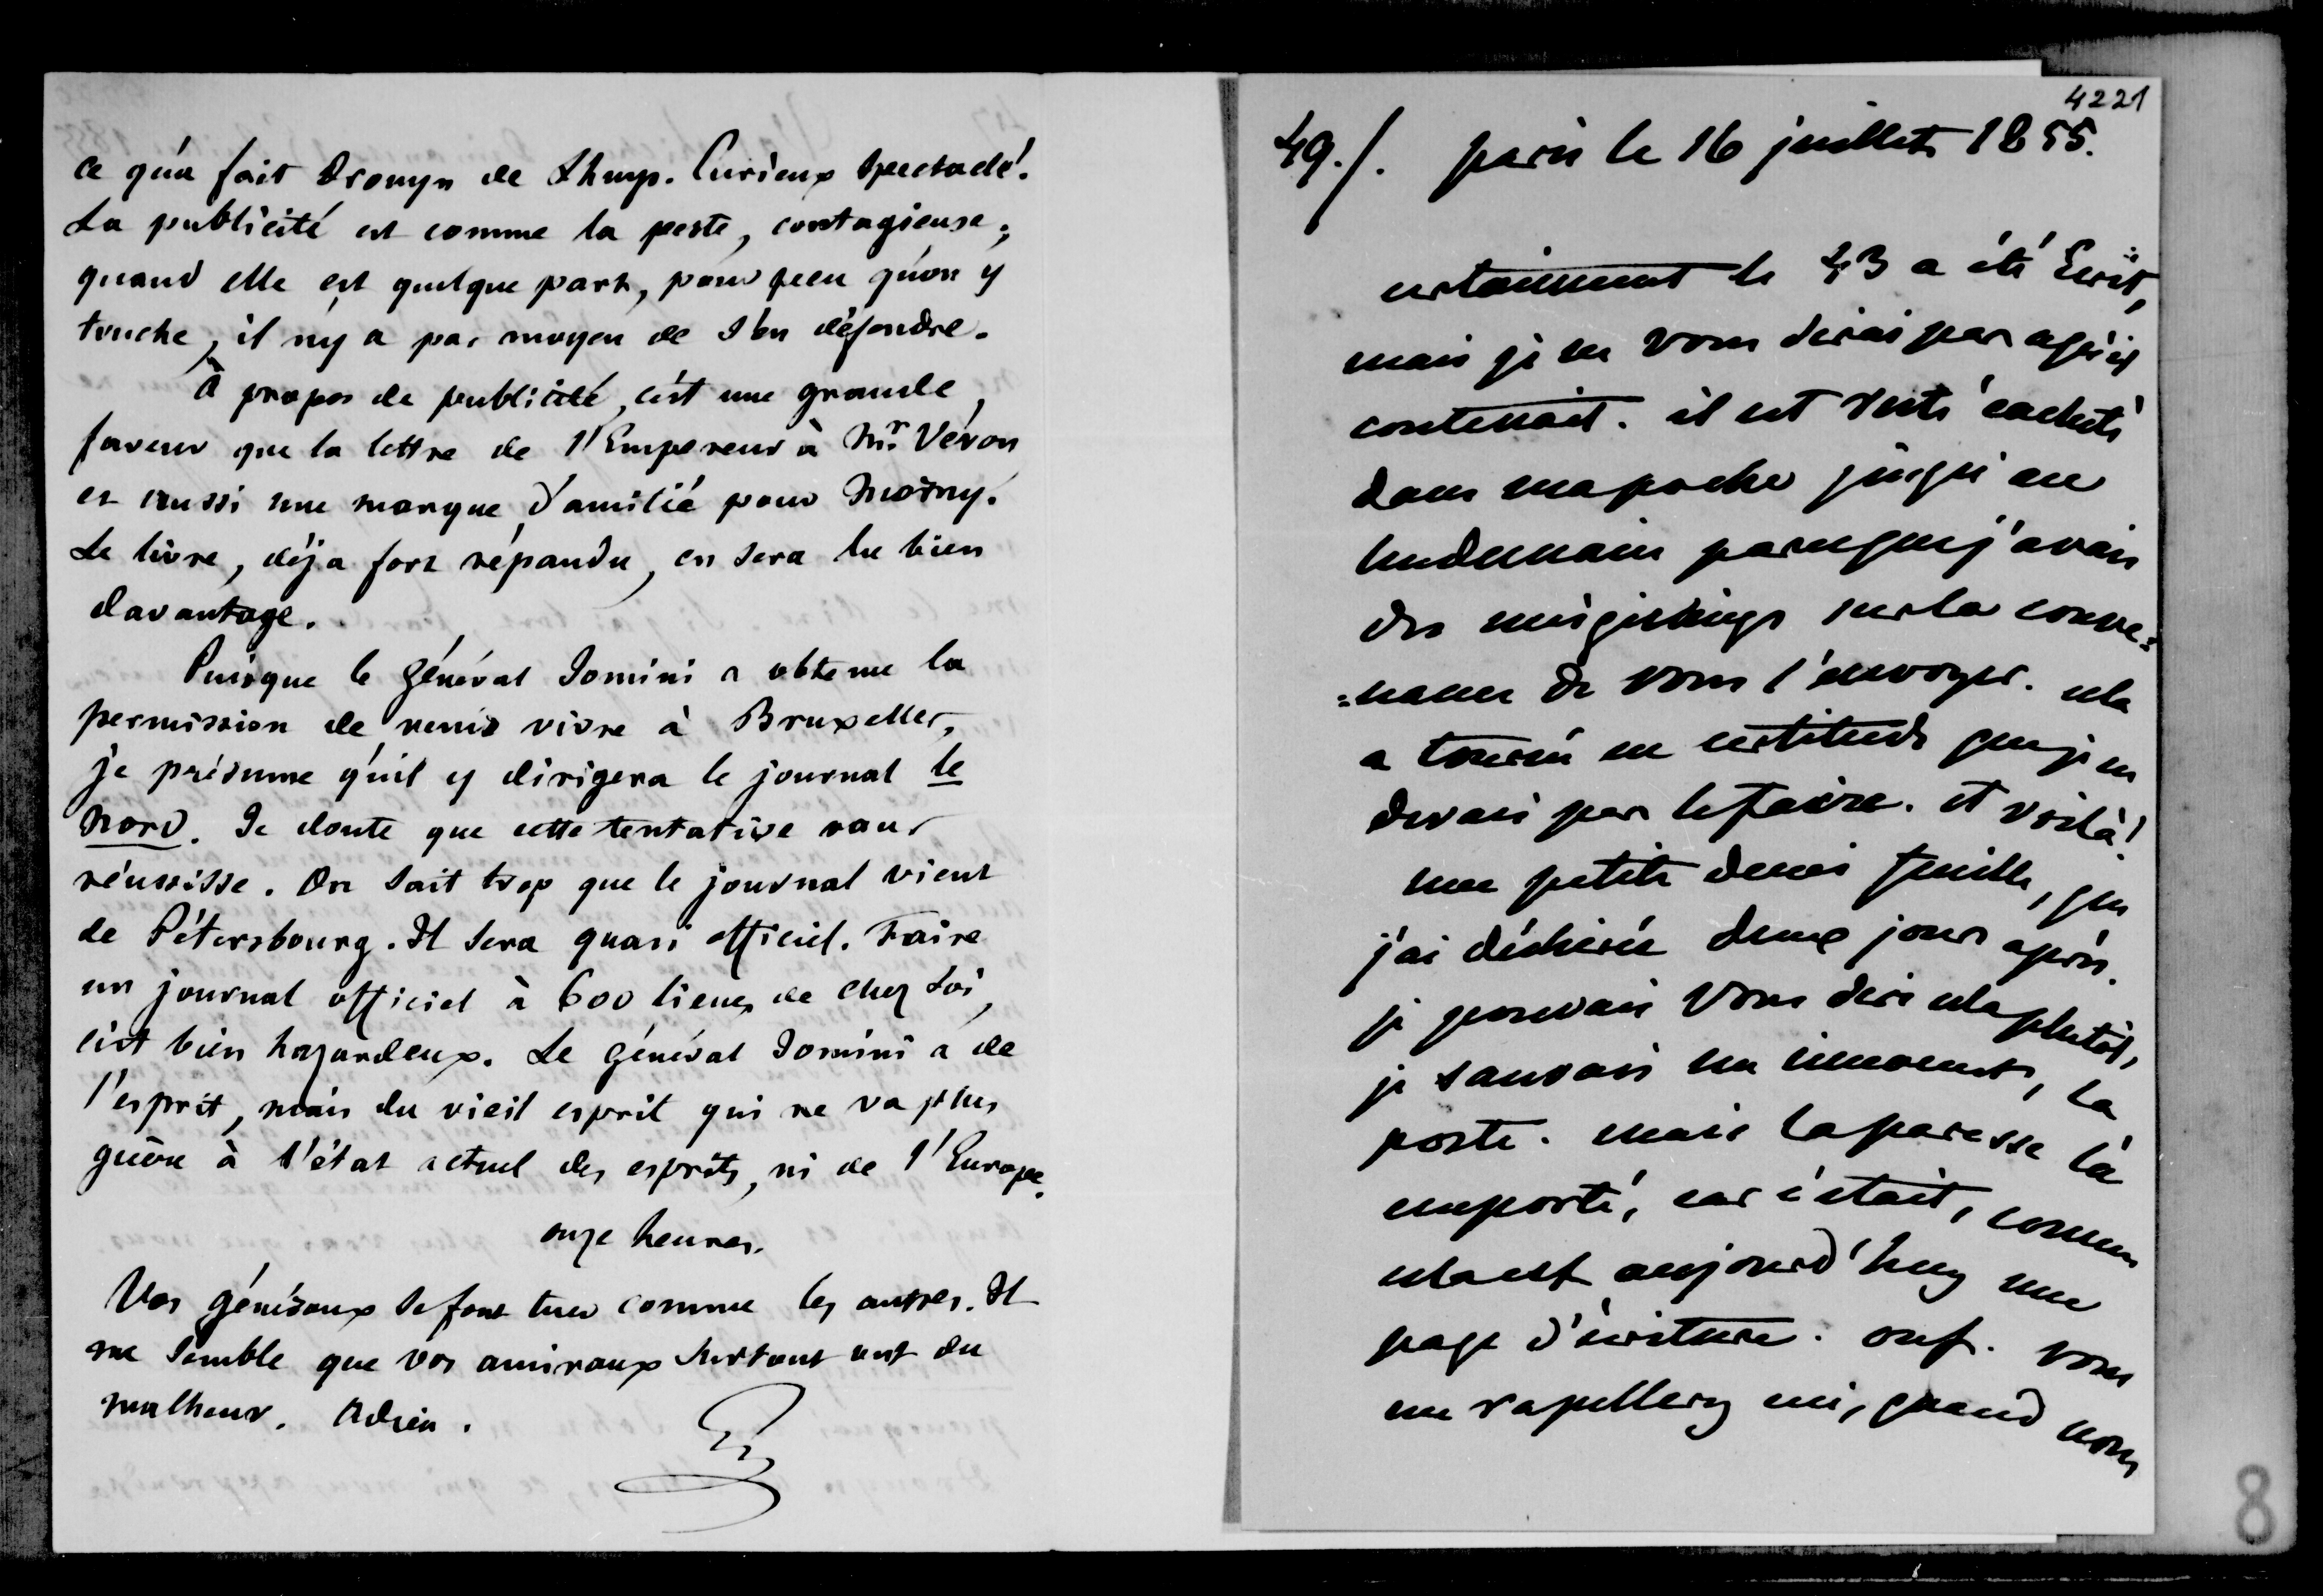 ce qu'a fait Drouyn de Lhuys. Curieux spectacle!
La publicité est comme la peste, contagieuse;
quand elle est quelque part, pour peu qu'on y
touche, il n'y a pas moyen de s'en défendre.
À propos de publicité, c'est une grande
faveur que la lettre de l'Empereur à Mr. Véron
et aussi une marque d'amitié pour Morny.
Le livre, déja fort répandu, en sera lu bien
davantage.
Puisque le général Jomini a obtenu la
permission de venir vivre à Bruxelles,
je présume qu'il y dirigera le journal le
Nord. Je doute que cette tentative vous
réussisse. On sait trop que le journal vient
de Pétersbourg. Il sera quasi officiel. Faire
un journal officiel à 600 lieues de chez soi,
c'est bien hazardeux. Le général Jomini a de
l'esprit, mais du vieil esprit qui ne va plus
guère à l'état actuel des esprits, ni de l'Europe.
onze heures.
Vos généraux se font tuer comme les autres. Il
me semble que vos amiraux surtout ont du
malheur. Adieu.
4221
49./. paris le 16 juillet 1855.
certainement le 43 a été Ecrit,
mais je ne vous dirai pas ce qu'il
contenait. il est resté cacheté
dans ma poche jusqu'au
lendemain parceque j'avais
des misgivings sur la conve=
=nance de vous l'envoyer. cela
a tourné en certitude que je ne
devais pas le faire. et voilà!
une petite demi feuille, que
j'ai déchirée deux jours après.
je pouvais vous dire cela plutôt,
je sauvais un innocent, la
poste. mais la paresse l'a
emporté, car c'était, comme
cela est aujourd'huy une
page d'écriture. ouf. vous
me rapellerez ceci, quand nous
8